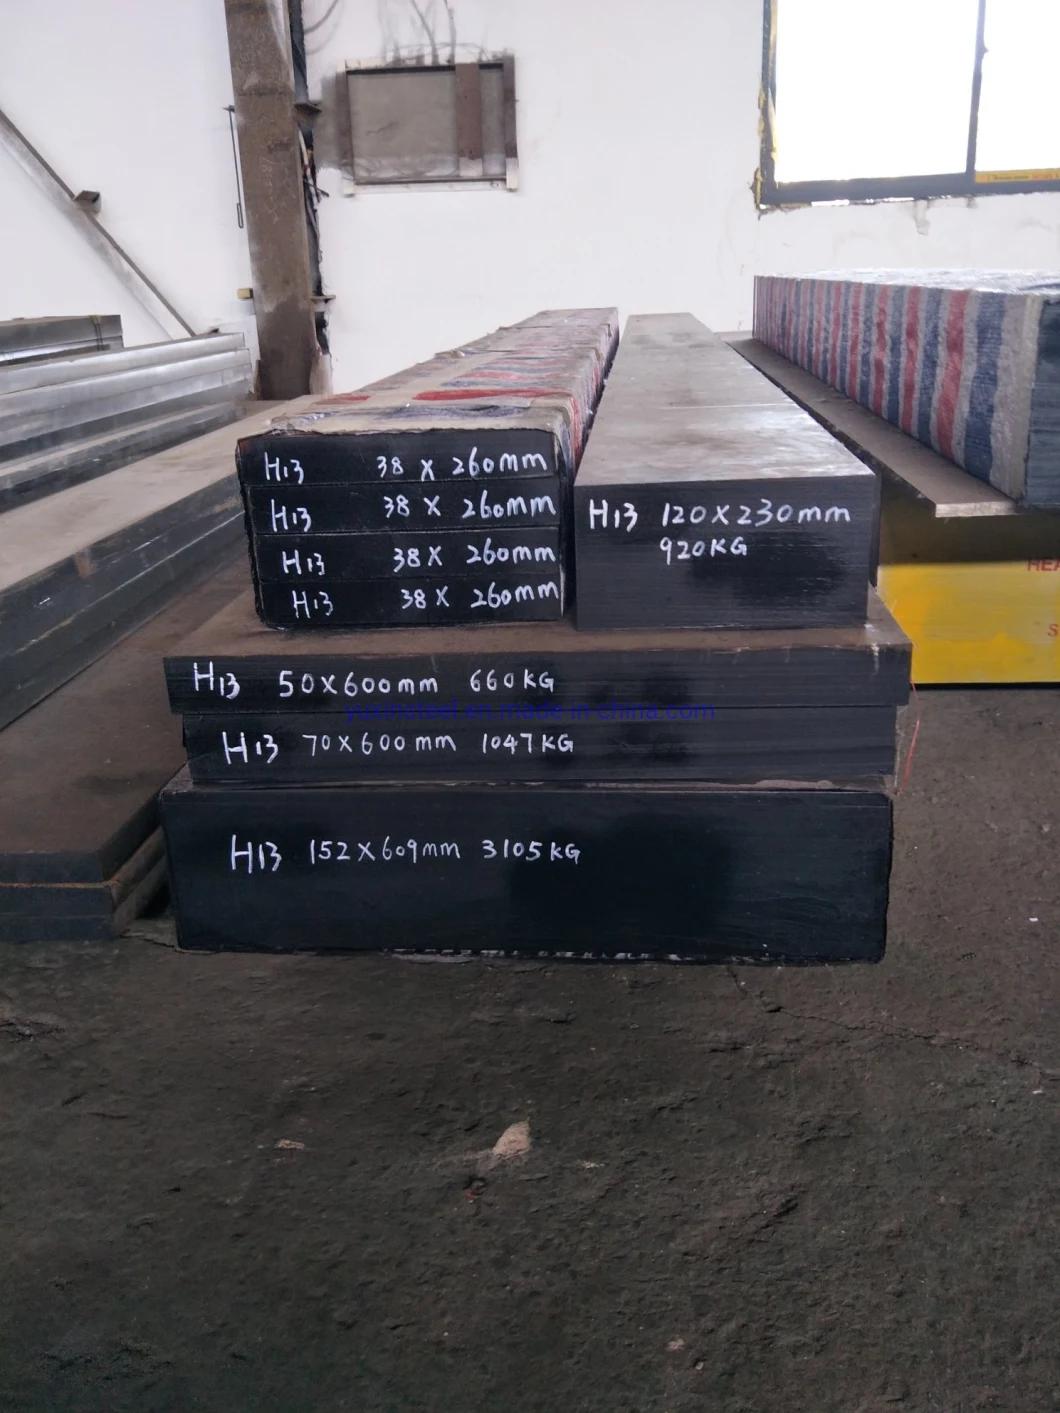 H13 38 X 260mm
H13 38 X 260mm
H13 38 X 260mm
H13 38 X 260mm
H13 120X230mm
920KG
H13 50X600mm 660KG
yuxinsteel.en.made-in-china.com
H13 70X600mm 1047KG
H13 152X609mm 3105KG
HEA
S